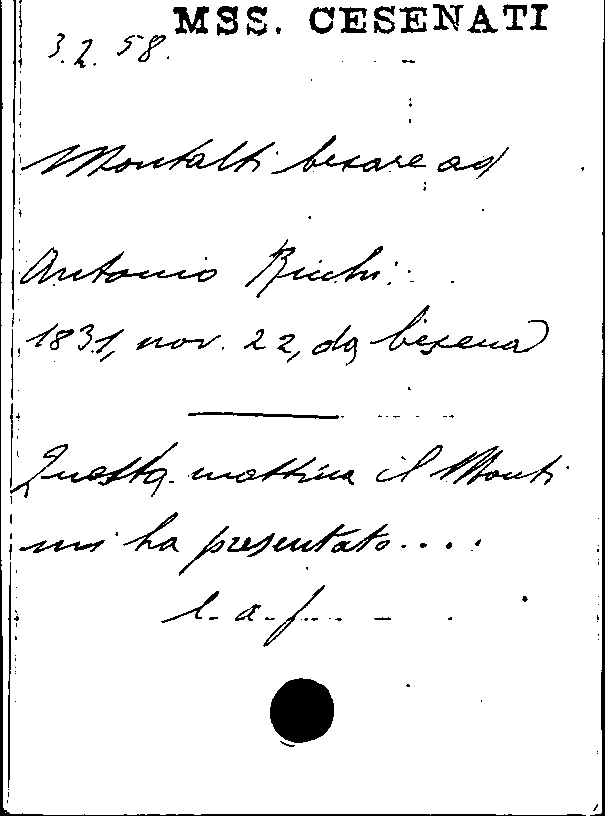 MSS. CESENATI
3.2.58.
Montalti Cesare ad
Antonio Bicchi:
1831, nov. 22, da Cesena
Questa mattina il Monti
mi ha presentato....
l. a. f.